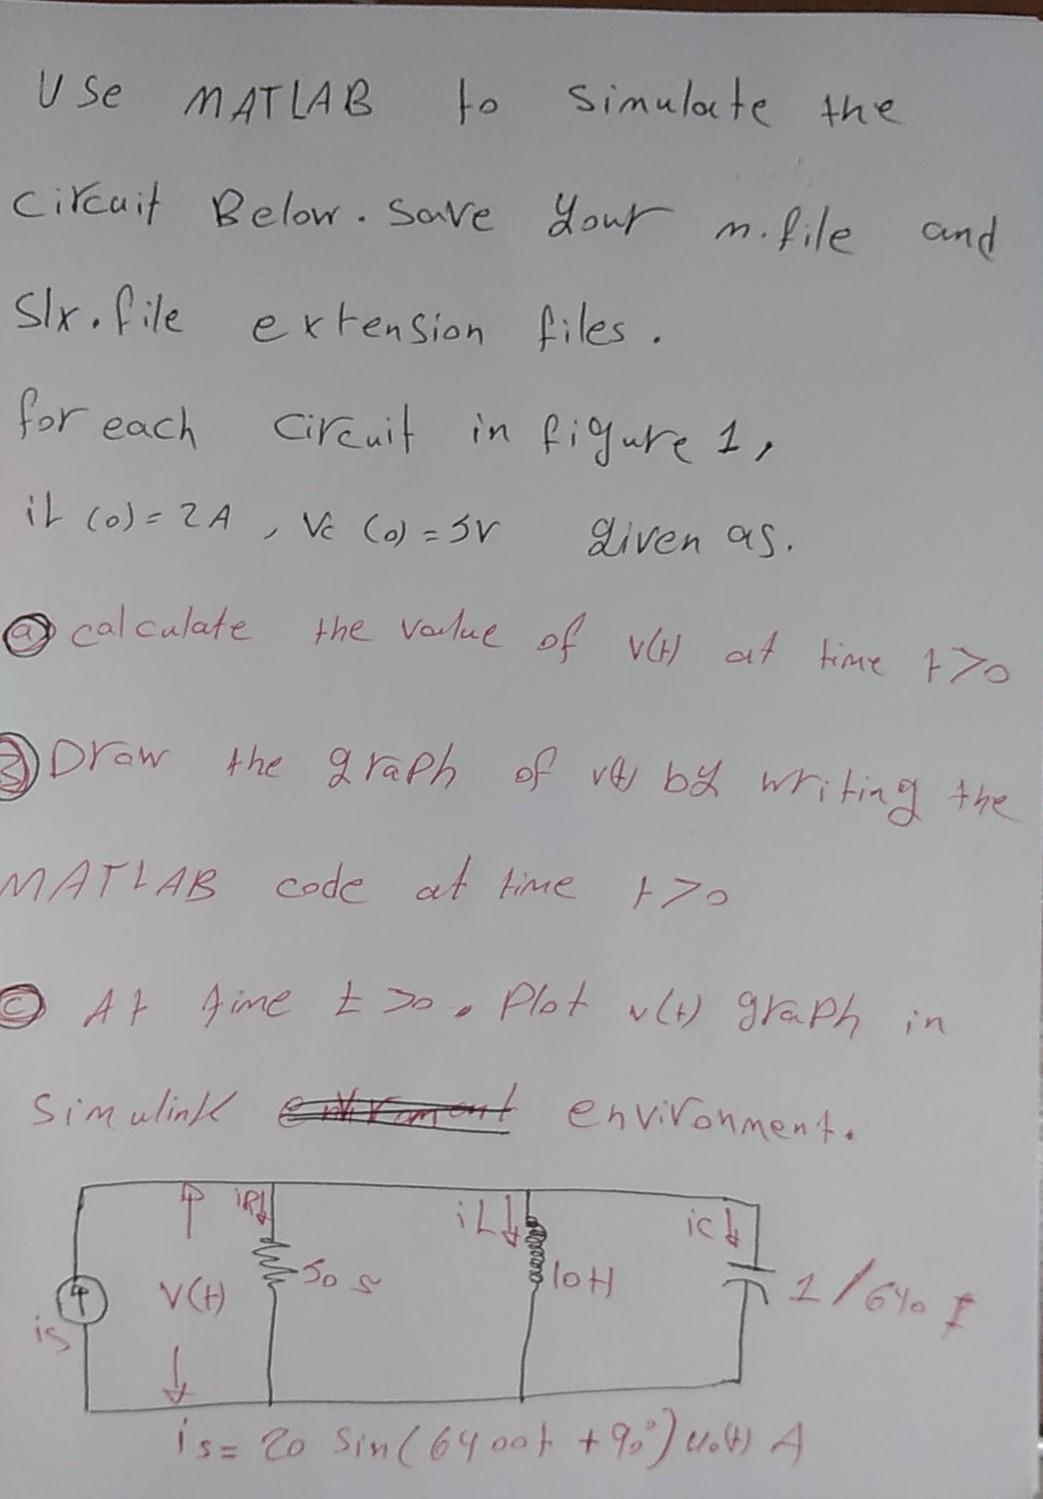 Use MATLAB to simulate the
circuit Below. Save your m.file and
Slx.file extension files.
for each circuit in figure 1,
iL (0) = 2A , Vc (0) = 5V given as.
a) calculate the value of v(t) at time t>0
B) Draw the graph of v(t) by writing the
MATLAB code at time t>0
C) At time t>0, Plot v(t) graph in
Simulink environment.
iR
iL
ic
is
V(t)
50 Ω
10H
1/640 F
is = 20 sin(6400t + 90°) u0(t) A